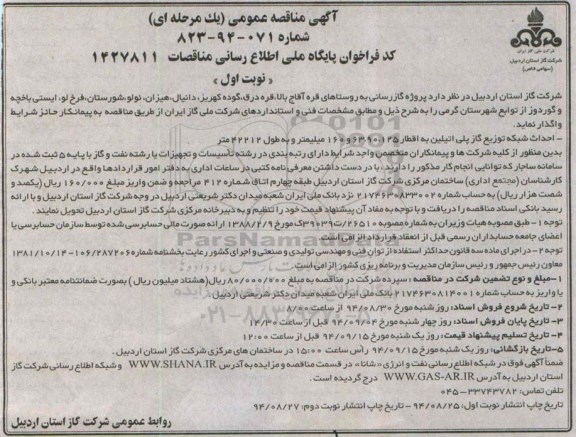 آگهی مناقصه عمومی (یک مرحله ای)
شماره ۰۷۱-۹۴-۸۲۳
کد فراخوان پایگاه ملی اطلاع رسانی مناقصات ۱۴۲۷۸۱۱
« نوبت اول »
شرکت ملی گاز ایران
شرکت گاز استان اردبیل
(سهامی خاص)
شرکت گاز استان اردبیل در نظر دارد پروژه گازرسانی به روستاهای قره آقاج بالا، قره درق، گوده کهریز، دانیال، هیزان، نولو، شورستان، فرخ لو، ایستی باخچه
و گوردوز از توابع شهرستان گرمی را به شرح ذیل و مطابق مشخصات فنی و استانداردهای شرکت ملی گاز ایران از طریق مناقصه به پیمانکار حائز شرایط
واگذار نماید.
- احداث شبکه توزیع گاز پلی اتیلن به اقطار ۱۲۵ و ۹۰ و ۶۳ و ۱۶۰ میلیمتر و به طول ۴۲۲۱۲ متر
بدین منظور از کلیه شرکت ها و پیمانکاران متخصص واجد شرایط دارای رتبه بندی در رشته تأسیسات و تجهیزات یا رشته نفت و گاز با پایه ۵ ثبت شده در
سامانه ساجار که توانایی انجام کار مذکور را دارند، با در دست داشتن معرفی نامه کتبی در ساعات اداری به دفتر امور قراردادها واقع در اردبیل شهرک
کارشناسان (مجتمع اداری) ساختمان مرکزی شرکت گاز استان اردبیل طبقه چهارم اتاق شماره ۴۱۲ مراجعه و ضمن واریز مبلغ ۱۶۰/۰۰۰ ریال (یکصد و
شصت هزار ریال) به حساب شماره ۲۱۷۴۶۳۰۸۳۳۰۰۲ نزد بانک ملی ایران شعبه میدان دکتر شریعتی اردبیل در وجه شرکت گاز استان اردبیل و با ارائه
رسید بانکی اسناد مناقصه را دریافت و با توجه به مفاد آن پیشنهاد قیمت خود را تنظیم و به دبیرخانه مرکزی شرکت گاز استان اردبیل تحویل نمایند.
توجه ۱- طبق مصوبه هیات وزیران به شماره مصوبه ۲۶۵۱۰/ت۳۹۰۳۹ک مورخ ۱۳۸۸/۲/۹ ارائه صورت مالی حسابرسی شده توسط سازمان حسابرسی یا
اعضای جامعه حسابداران رسمی قبل از انعقاد قرارداد الزامی است.
توجه ۲- در اجرای ماده سه قانون حداکثر استفاده از توان فنی و مهندسی تولیدی و صنعتی و اجرای کشور رعایت بخشنامه شماره ۱۰۶/۲۸۷۲۰۶-۱۳۸۱/۱۰/۱۴
معاون رئیس جمهور و رئیس سازمان مدیریت و برنامه ریزی کشور الزامی است.
۱- مبلغ و نوع تضمین شرکت در مناقصه : سپرده شرکت در مناقصه به مبلغ ۸۰/۰۰۰/۶۰۰ ریال (هشتاد میلیون ریال) بصورت ضمانتنامه معتبر بانکی و
یا واریز به حساب شماره ۲۱۷۴۶۳۰۸۱۴۰۰۱ بانک ملی ایران شعبه میدان دکتر شریعتی اردبیل
۲- تاریخ شروع فروش اسناد: روز شنبه مورخ ۹۴/۰۸/۳۰ از ساعت ۸/۰۰
۳- تاریخ پایان فروش اسناد: روز چهار شنبه مورخ ۹۴/۰۹/۰۴ قبل از ساعت ۱۴/۳۰
۴- تاریخ تسلیم پیشنهاد قیمت: روز یک شنبه مورخ ۹۴/۰۹/۱۵ قبل از ساعت ۱۲:۰۰
۵- تاریخ بازگشائی : روز یک شنبه مورخ ۹۴/۰۹/۱۵ رأس ساعت ۱۵:۰۰ در ساختمان های مرکزی شرکت گاز استان اردبیل.
ضمناً آگهی فوق در شبکه اطلاع رسانی نفت و انرژی « شانا » در قسمت مناقصه و مزایده به آدرس WWW.SHANA.IR و شبکه اطلاع رسانی شرکت گاز
استان اردبیل به آدرس WWW.GAS-AR.IR درج گردیده است.
تلفن تماس: ۳۳۷۴۳۷۸۲-۰۴۵
تاریخ چاپ انتشار نوبت اول: ۹۴/۰۸/۲۵ - تاریخ چاپ انتشار نوبت دوم: ۹۴/۰۸/۲۷
روابط عمومی شرکت گاز استان اردبیل
ParsNamadData
۰۲۱-۸۸۳۴۹۶۷۰